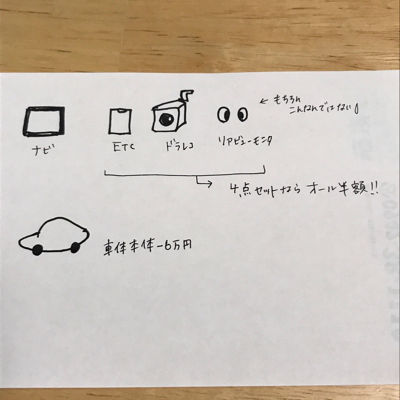 ←もちろん
こんなんではない
ナビ
ETC
ドラレコ
リアビューモニタ
4点セットなら オール半額!!
車体本体-6万円